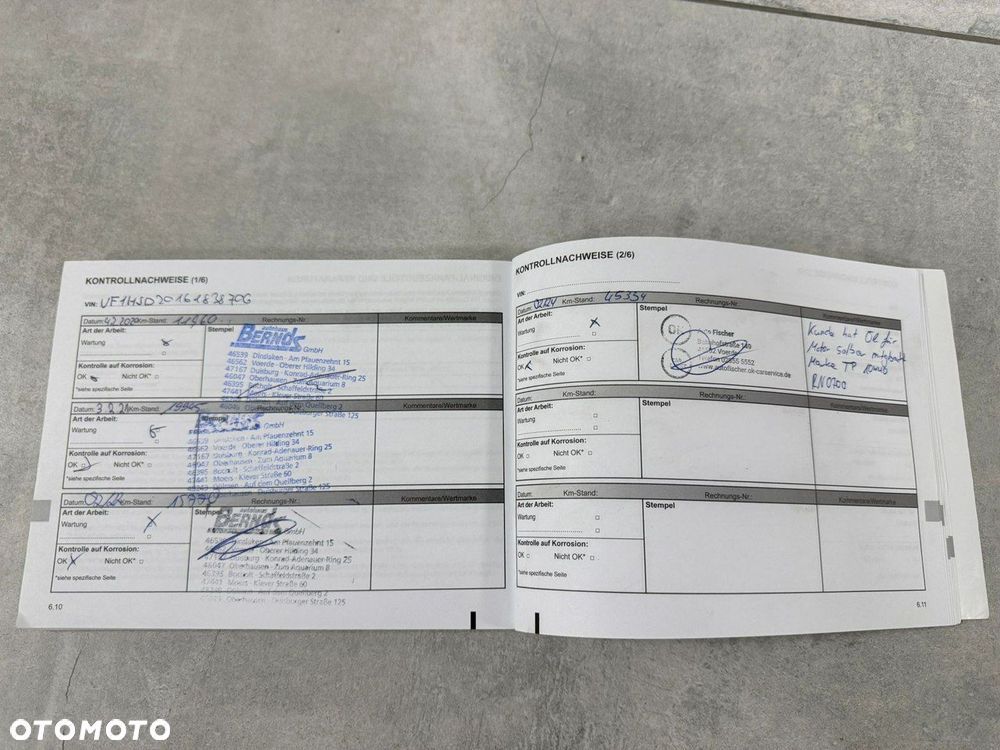 KONTROLLNACHWEISE (1/6)
VIN: VF1HJD20161838706
Datum: Km-Stand: 11460 Rechnungs-Nr. Kommentare/Wertmarke
Art der Arbeit: Stempel
Wartung
Kontrolle auf Korrosion:
OK Nicht OK*
*siehe spezifische Seite
autohaus
BERNDS GmbH
46539 Dinslaken · Am Pfauenzehnt 15
46562 Voerde · Oberer Hilding 34
47167 Duisburg · Konrad-Adenauer-Ring 25
46047 Oberhausen · Zum Aquarium 8
46395 Bocholt · Schaffeldstraße 2
47441 Moers · Klever Straße 60
Datum: Km-Stand: Rechnungs-Nr. Kommentare/Wertmarke
Art der Arbeit: Stempel
Wartung
Kontrolle auf Korrosion:
OK Nicht OK*
*siehe spezifische Seite
BERNDS GmbH
46539 Dinslaken · Am Pfauenzehnt 15
46562 Voerde · Oberer Hilding 34
47167 Duisburg · Konrad-Adenauer-Ring 25
46047 Oberhausen · Zum Aquarium 8
46395 Bocholt · Schaffeldstraße 2
47441 Moers · Klever Straße 60
Datum: Km-Stand: 15770 Rechnungs-Nr.: Kommentare/Wertmarke
Art der Arbeit: Stempel
Wartung
Kontrolle auf Korrosion:
OK Nicht OK*
*siehe spezifische Seite
autohaus
BERNDS GmbH
46539 Dinslaken · Am Pfauenzehnt 15
Oberer Hilding 34
Duisburg · Konrad-Adenauer-Ring 25
46047 Oberhausen · Zum Aquarium 8
46395 Bocholt · Schaffeldstraße 2
47441 Moers · Klever Straße 60
Oberhausen · Duisburger Straße 125
6.10
KONTROLLNACHWEISE (2/6)
VIN:
Datum: 02.24 Km-Stand: 45334 Rechnungs-Nr. Kommentare/Wertmarke
Art der Arbeit: Stempel
Wartung
Kontrolle auf Korrosion:
OK Nicht OK*
*siehe spezifische Seite
Fischer
Bahnhofstraße
Voerde
Telefon 02855 5552
www.autofischer.ok-carservice.de
Kunde hat Öl für
Motor selber mitgebracht
Marke TP 10W40
RN0700
Datum: Km-Stand: Rechnungs-Nr.: Kommentare/Wertmarke
Art der Arbeit: Stempel
Wartung
Kontrolle auf Korrosion:
OK Nicht OK*
*siehe spezifische Seite
Datum: Km-Stand: Rechnungs-Nr.: Kommentare/Wertmarke
Art der Arbeit: Stempel
Wartung
Kontrolle auf Korrosion:
OK Nicht OK*
*siehe spezifische Seite
6.11
OTOMOTO